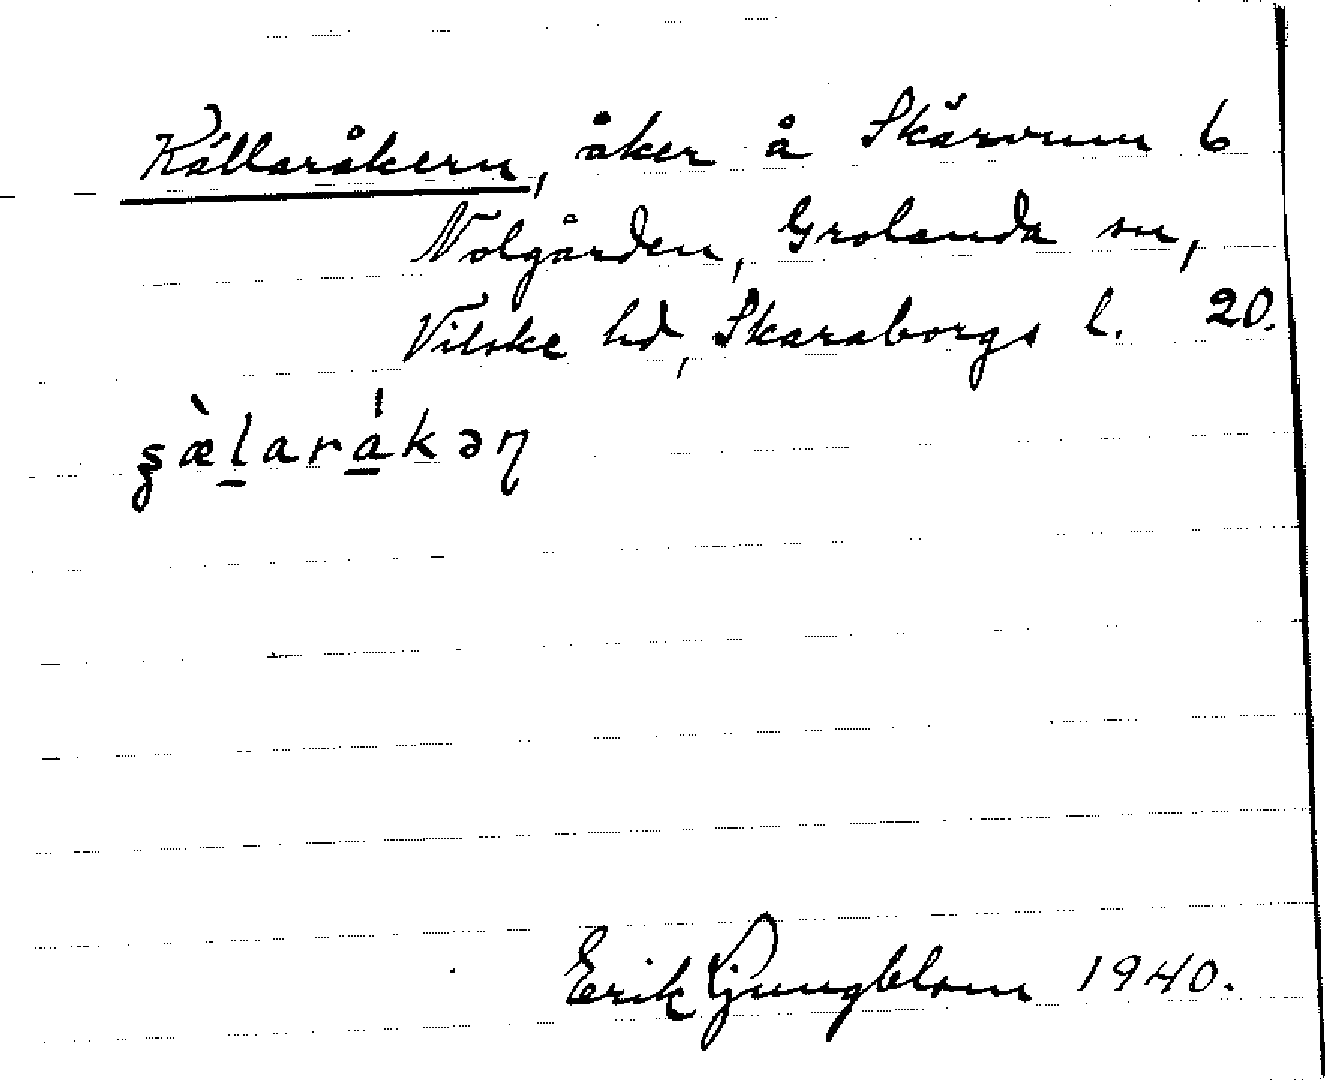 Källaråkern, åker å Skärvum 6
Nolgården, Grolanda sn,
Vilske hd, Skaraborgs l. 20.
ʂæ̀l̠ará̠kəη
Erik Ljungblom 1940.